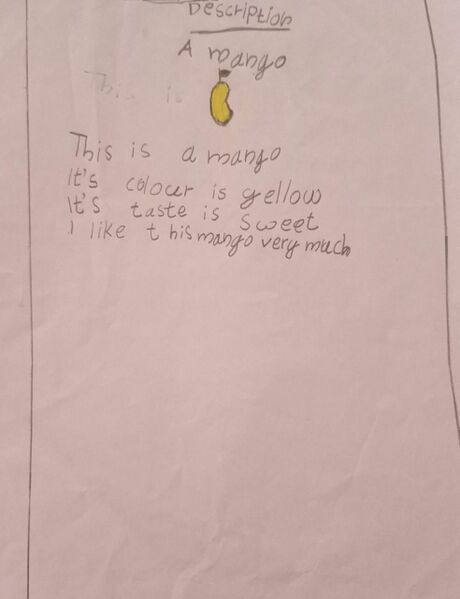 Description
A mango
This is
This is a mango
It's colour is yellow
It's taste is sweet
I like t his mango very much